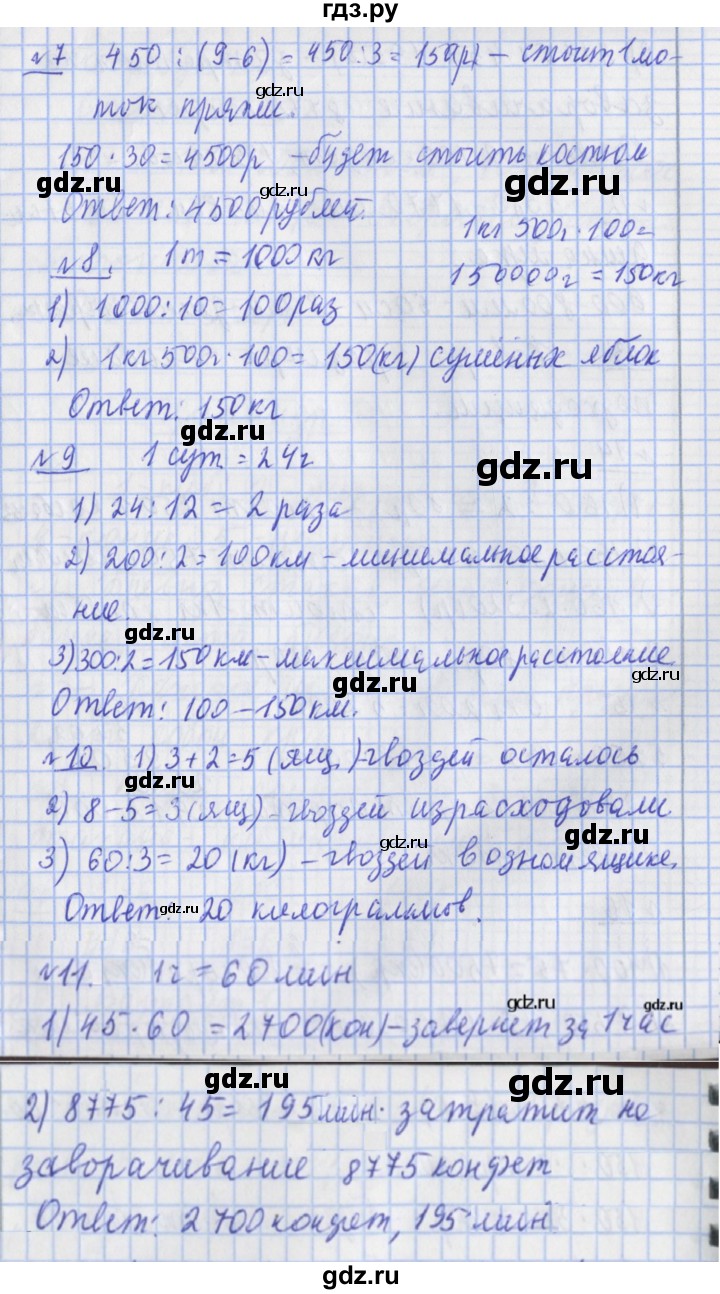 гдз.ру
№7 450 : (9-6) = 450:3 = 150(р) – стоит 1 мо-
gdz.ru
ток пряжи.
gdz.ru
150 · 30 = 4500р – будет стоить костюм
gdz.ru gdz.ru gdz.ru
Ответ: 4500 рублей.
1кг 500г · 100=
№8. 1т = 1000кг
150000г = 150кг
1) 1000:10 = 100раз
2) 1кг 500г · 100 = 150(кг) сушёных яблок
Ответ: 150кг
gdz.ru
№9 1 сут = 24ч
gdz.ru
1) 24:12 = 2 раза
2) 200:2 = 100км – минимальное расстоя-
ние.
gdz.ru
3) 300:2 = 150км – максимальное расстояние
gdz.ru
Ответ: 100 – 150км.
№10. 1) 3+2=5 (ящ.) гвоздей осталось
gdz.ru
2) 8-5=3 (ящ) – гвоздей израсходовали
gdz.ru
3) 60:3= 20 (кг) – гвоздей в одном ящике.
gdz.ru
Ответ: 20 килограммов.
gdz.ru
№11. 1ч = 60 мин
gdz.ru gdz.ru
1) 45·60 = 2700(кон) – завернет за 1 час
gdz.ru gdz.ru
2) 8775 : 45 = 195 мин. затратит на
заворачивание 8775 конфет
gdz.ru gdz.ru
Ответ: 2700 конфет, 195 мин.
gdz.ru